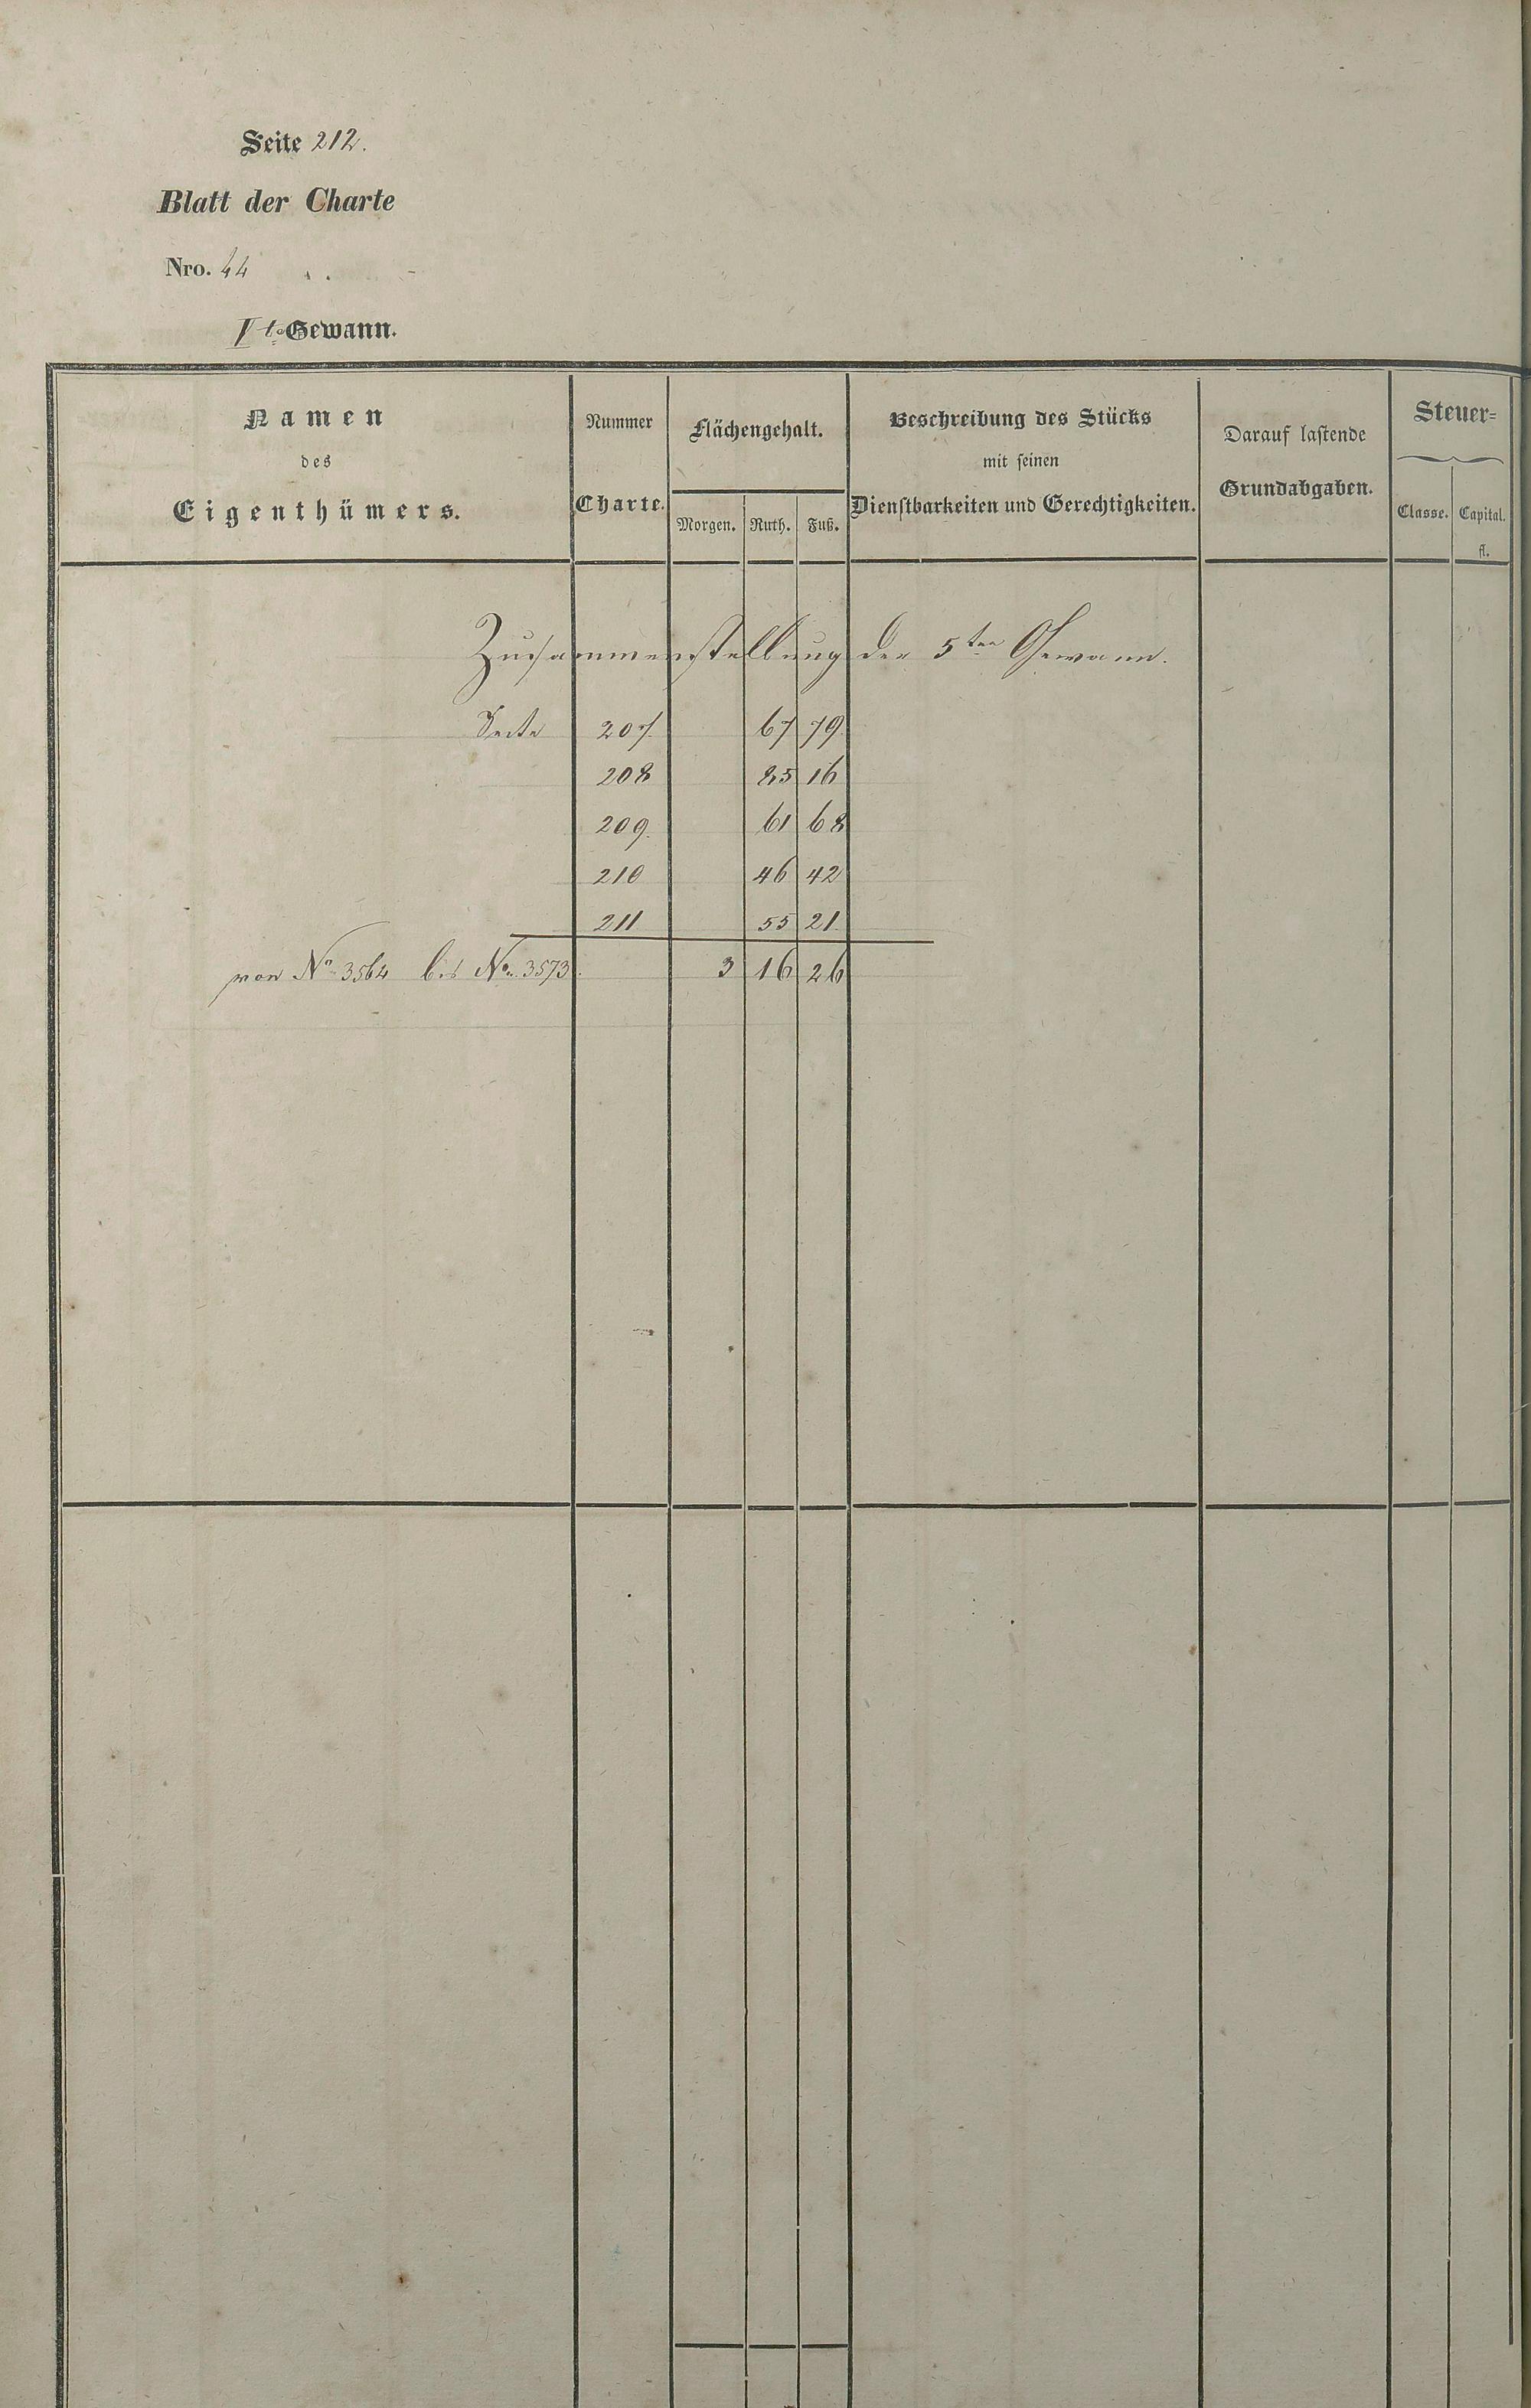 Seite 212.
Blatt der Charte
Nro. 44
Vte Gewann.
Namen des Eigenthümers.
Nummer Charte.
Flächengehalt.
Morgen. Ruth. Fuß.
Beschreibung des Stücks mit seinen Dienstbarkeiten und Gerechtigkeiten.
Darauf lastende Grundabgaben.
Steuer=
Classe. Capital.
fl.
Zusammenstellung der 5ten Gewann.
Seite 207. 67 79.
208 85 16
209. 61 68
210 46 42
211 55 21.
von No. 3564 bis No. 3573. 3 16 26